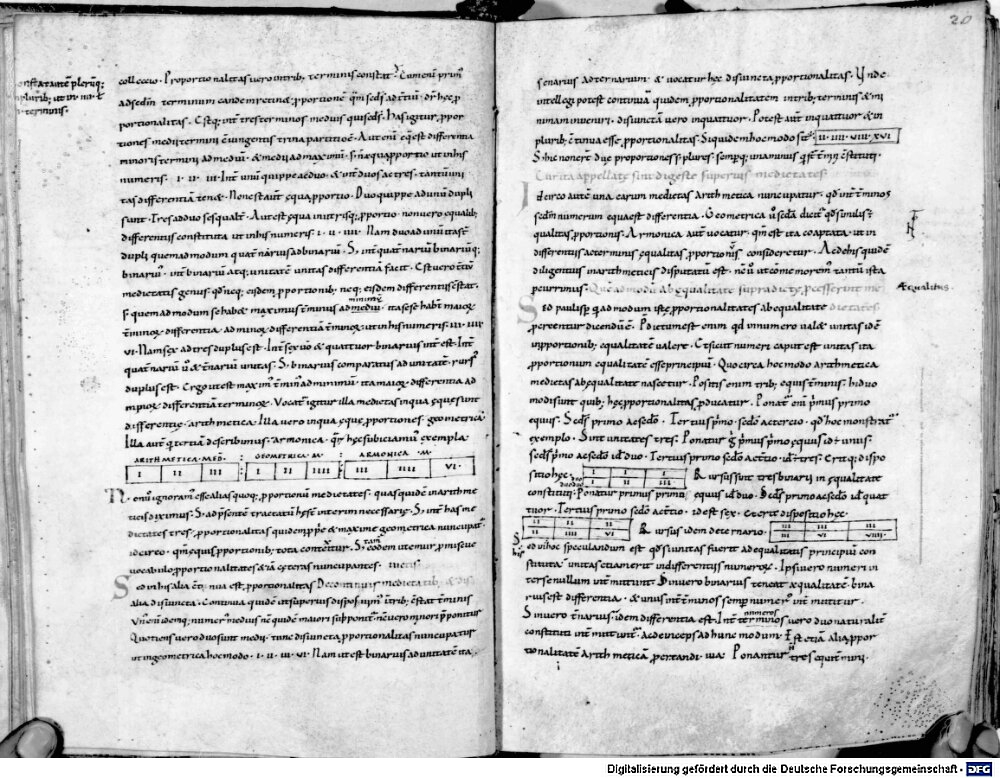 collectio. Proportionalitas uero intrib; terminis constat. Cum enim prim'
ad secdm terminum eandem retinet proportionē
portionalitas. Estq; int tres terminos medius qui secds. Has igitur
tiones medii termini coniungentis trina partitio ē. Aut enī equa est differentia
minoris termini ad mediū. & medii ad maximū. ut in his
numeris. I. II. III. Int unū quippe ac duo & int duos ac tres. tantū uni
tas differentia tenet. Non est aut equa proportio. Duo quippe ad unū dupli
sunt. Tres ad duo sesqualt. Aut est equa in utrisq; proportio. non uero equalib;
differentiis constituta ut in his numeris. I. II. IIII. Nam duo ad unū ita st
dupli quemadmodum quat nariusad binariū. S; int quat nariū binariūq;
binarius. int binariū atq; unitatē unitas differentia facit. Est uero tertiū
medietatis genus qd neq; eisdem proportionib; neq; eisdem differentiis constat.
quemadmodum se habet maximus t minus ad minimū. ita sese habet maiorū
t minorū differentia. ad minorū differentia t minorū. ut in his numeris. III. IIII.
VI. Nam sex ad tres duplus est. Int sex uō & quattuor binarius int est. Int
quat nariū ū & t nariū unitas. S; binarius comparatus ad unitatē. rurs'
duplus est. Ergo ut est maxim' t min' ad minimū. ita maiorū differentia ad
minorū differentiā terminorū. Vocat igitur illa medietas inqua eque sunt
differentie. arithmetica. Illa uero inqua eque proportiones. geometrica.
Illa aut q tertiā describimus. armonica. quorū hec subiciam' exempla.
ARITHMETICA. MED. : GEOMETRICA. M. : ARMONICA. M.
I II III : I II IIII : III IIII VI.
Non ū ignoram' esse alias quoq; proportionū medietates. quas quidē in arithme
ticis diximus. S; ad presentē tractatū hę s interim necessarie. S; int has me
dietates tres. proportionalitas quidem prie & maxime geometrica nuncupat
idcirco. qm equis proportionib; tota contexitur. S; tam eodem utemur promiscue
uocabulo proportionalitates & iā ceteras nuncupantes.
Sed in his alia continua est proportionalitas De continuis medietatib; & dis
alia disiuncta. Continua quidē ut superius disposuim'. in trib; constat t minis
Vn enī idemq; numer' medius nc quidē maiori supponit. nc uero minori preponitur
Quotiens uero duo sunt medii. tunc disiunctā proportionalitas nuncupatur
ut in geometrica hoc modo. I. II. III. VI. Nam ut est binarius ad unitatē ita.
20
senarius ad ternarium. & uocatur hęc disiuncta proportionalitas. Vnde
intellegi potest continuā quidem proportionalitatem intrib; terminis & mi
nimam inueniri. disiunctā uero inquattuor. Potest aut inquattuor & in
plurib; continua esse proportionalitas. Siquidem hoc modo sit. II. IIII. VIII. XVI
S; hic non erunt due proportiones s; plures. sempq; una minus
Cur ita appellate sint digeste superius medietates
Idcirco autē una earum medietas arithmetica nuncupatur. qd int t minos
secdm numerum equa est differentia. Geometrica ū secda dicit qd similis e
qualitas proportionis. Armonica aut uocatur. qm est ita coaptata. ut in
differentiis ac terminis equalitas proportionis consideretur. Ac de his quidē
diligentius in arithmeticis disputatū est. nc ū ut commemorem' tantū ista
percurrimus. Quemadmodū ab equalitate supradicte processerint me
Sed paulisp quemadmodum iste proportionalitates ab equalitate dietates
procreentur dicendū ē. Predictum est enim qd in numero ualet unitas idē
in proportionib; equalitatē ualere. Et sicut numeri caput est unitas ita
proportionum equalitatē esse principiū. Quocirca hoc modo arithmetica
medietas ab equalitate nascetur. Positis enim trib; equis t minis. hi duo
modi sunt quib; hęc proportionalitas producatur. Ponat enī primus primo
equus. Secds primo ac secdo. Tertius primo. secdo ac tercio. qd hoc monstrat
exemplo. Sint unitates tres. Ponatur g primus primo equus id ē unus.
secds primo ac secdo id ē duo. Tertius primo secdo ac tertio. id ē tres. Eritq; dispo
sitio hęc. I I I Rursus sint tres binarii in equalitate
I II III
constituti. Ponatur primus primo equus id ē duo. Secds primo ac secdo id ē quat
tuor. Tertius primo secdo ac tertio. id est sex. Et erit dispositio hęc.
II II II & rursus idem de ternario. III III III
II IIII VI III VI VIIII
Sed in hoc speculandum est qd si unitas fuerit ad equalitatis principiū con
stituta unitas etiam erit in differentiis numerorū. Ipsi uero numeri in
ter se nullum int mittunt. S; in uero binarius teneat equalitatē. bina
rius est differentia. & unus int t minos semp numer' int mittitur.
Si uero t narius. idem differentia est. Int terminos numeros uero duo naturalit
constituti int mittunt. Ac deinceps ad hunc modum. Est etiā alia propor
tionalitatē arithmeticā procreandi uia. Ponantur n tres equi t mini.
Æqualitas.
Digitalisierung gefördert durch die Deutsche Forschungsgemeinschaft - DFG